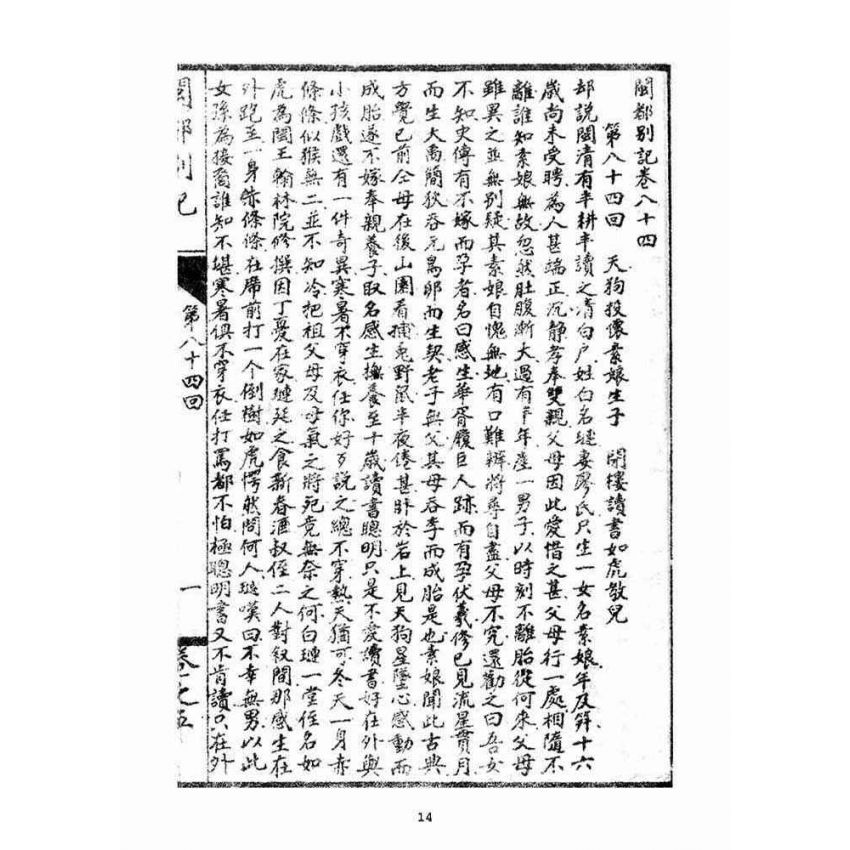 閩都别記卷八十四
第八十四回　天狗投懷素娘生子　閉樓讀書如虎教兒
却説閩清有半耕半讀之清白户姓白名璉妻廖氏只生一女名素娘年及筓十六
歲尚未受聘為人甚端正沉静孝奉雙親父母因此愛惜之甚父母行一處相隨不
離誰知素娘無故忽然肚腹漸大過有半年產一男子以時刻不離胎從何來父母
雖異之並無别疑其素娘自愧無地有口難辨將尋自盡父母不究還勸之曰吾女
不知史傳有不嫁而孕者名曰感生華胥履巨人跡而有孕伏羲修己見流星貫月
而生大禹簡狄吞玄鳥卵而生契老子無父其母吞李而成胎是也素娘聞此古典
方覺已前仝母在後山園看捕兎野鼠半夜倦甚卧於岩上見天狗星墜心感動而
成胎遂不嫁奉親養子取名感生撫養至十歲讀書聰明只是不愛讀書好在外與
小孩戲還有一件奇異寒暑不穿衣任你好歹説之總不穿熱天猶可冬天一身赤
條條似猴無二並不知冷把祖父母及母氣之將死竟無奈之何白璉一堂侄名如
虎為閩王翰林院修撰因丁憂在家璉廷之食新春酒叔侄二人對叙間那感生在
外跑至一身赤條條在席前打一个倒樹如虎愕然問何人璉嘆曰不幸無男以此
女孫為接裔誰知不堪寒暑俱不穿衣任打罵都不怕極聰明書又不肯讀只在外
閩都别記
第八十四回
一
卷之五
14